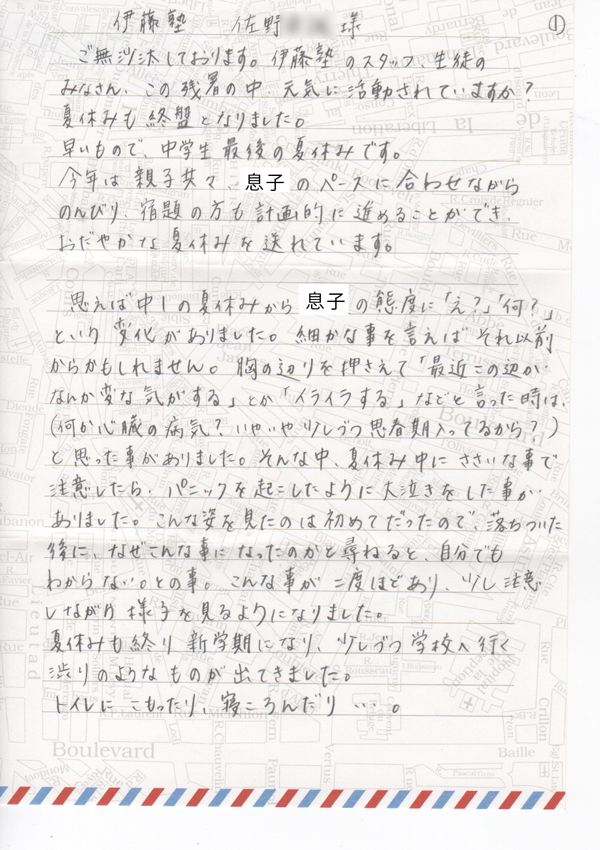 伊藤塾 佐野 様 ①
ご無沙汰しております。伊藤塾のスタッフ、生徒の
みなさん、この残暑の中、元気に活動されていますか?
夏休みも終盤となりました。
早いもので、中学生最後の夏休みです。
今年は親子共々、息子のペースに合わせながら
のんびり、宿題の方も計画的に進めることができ、
おだやかな夏休みを送れています。
思えば中1の夏休みから息子の態度に「え?」「何?」
という変化がありました。細かな事を言えばそれ以前
からかもしれません。胸の辺りを押さえて「最近この辺が
なんか変な気がする」とか「イライラする」などと言った時は、
(何か心臓の病気?いやいや少しづつ思春期入ってるから?)
と思った事がありました。そんな中、夏休み中にささいな事で
注意したら、パニックを起こしたように大泣きをした事が
ありました。こんな姿を見たのは初めてだったので、落ちついた
後に、なぜこんな事になったのかと尋ねると、自分でも
わからない。との事。こんな事が二度ほどあり、少し注意
しながら様子を見るようになりました。
夏休みも終り新学期になり、少しづつ学校へ行く
渋りのようなものが出てきました。
トイレにこもったり、寝ころんだり…。
Boulevard
Baille